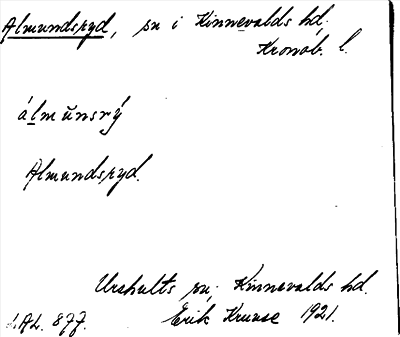 Almundsryd, sn i Kinnevalds hd.
Kronob. l.
álmŭnsrý
Almundsryd.
Urshults sn; Kinnevalds hd.
LAL. 877. Erik Kruuse 1921.